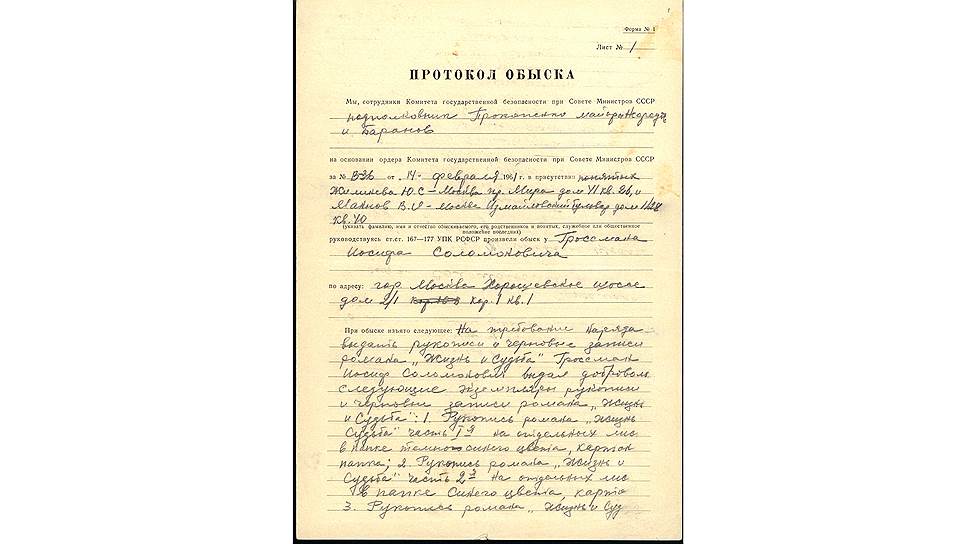 Форма № 1
Лист № 1
ПРОТОКОЛ ОБЫСКА
Мы, сотрудники Комитета государственной безопасности при Совете Министров СССР
подполковник Прокопенко майоры
и Баранов
на основании ордера Комитета государственной безопасности при Совете Министров СССР
за № В-36 от „14„ февраля 1961 г. в присутствии понятых
Ю.С – Москва пр. Мира дом 41 кв. 26, и
В.И – Москва Измайловский бульвар дом
кв. 40
(указать фамилию, имя и отчество обыскиваемого, его родственников и понятых, служебное или общественное
положение последних)
руководствуясь ст.ст. 167—177 УПК РСФСР произвели обыск у Гроссмана
Иосифа Соломоновича
по адресу: гор Москва Хорошевское шоссе
дом 2/1 кор. 1 кв. 1
При обыске изъято следующее: На требование наряда
выдать рукописи и черновые записи
романа „Жизнь и Судьба" Гроссман
Иосиф Соломонович выдал добровол
следующие экземпляры рукописи
и черновые записи романа „Жизнь
и Судьба": 1. Рукопись романа „Жизнь
Судьба" часть I я на отдельных лис
в папке темно синего цвета, картон
папка; 2. Рукопись романа „Жизнь и
Судьба" часть 2 я на отдельных лис
в папке синего цвета, карто
3. Рукопись романа „Жизнь и Суд